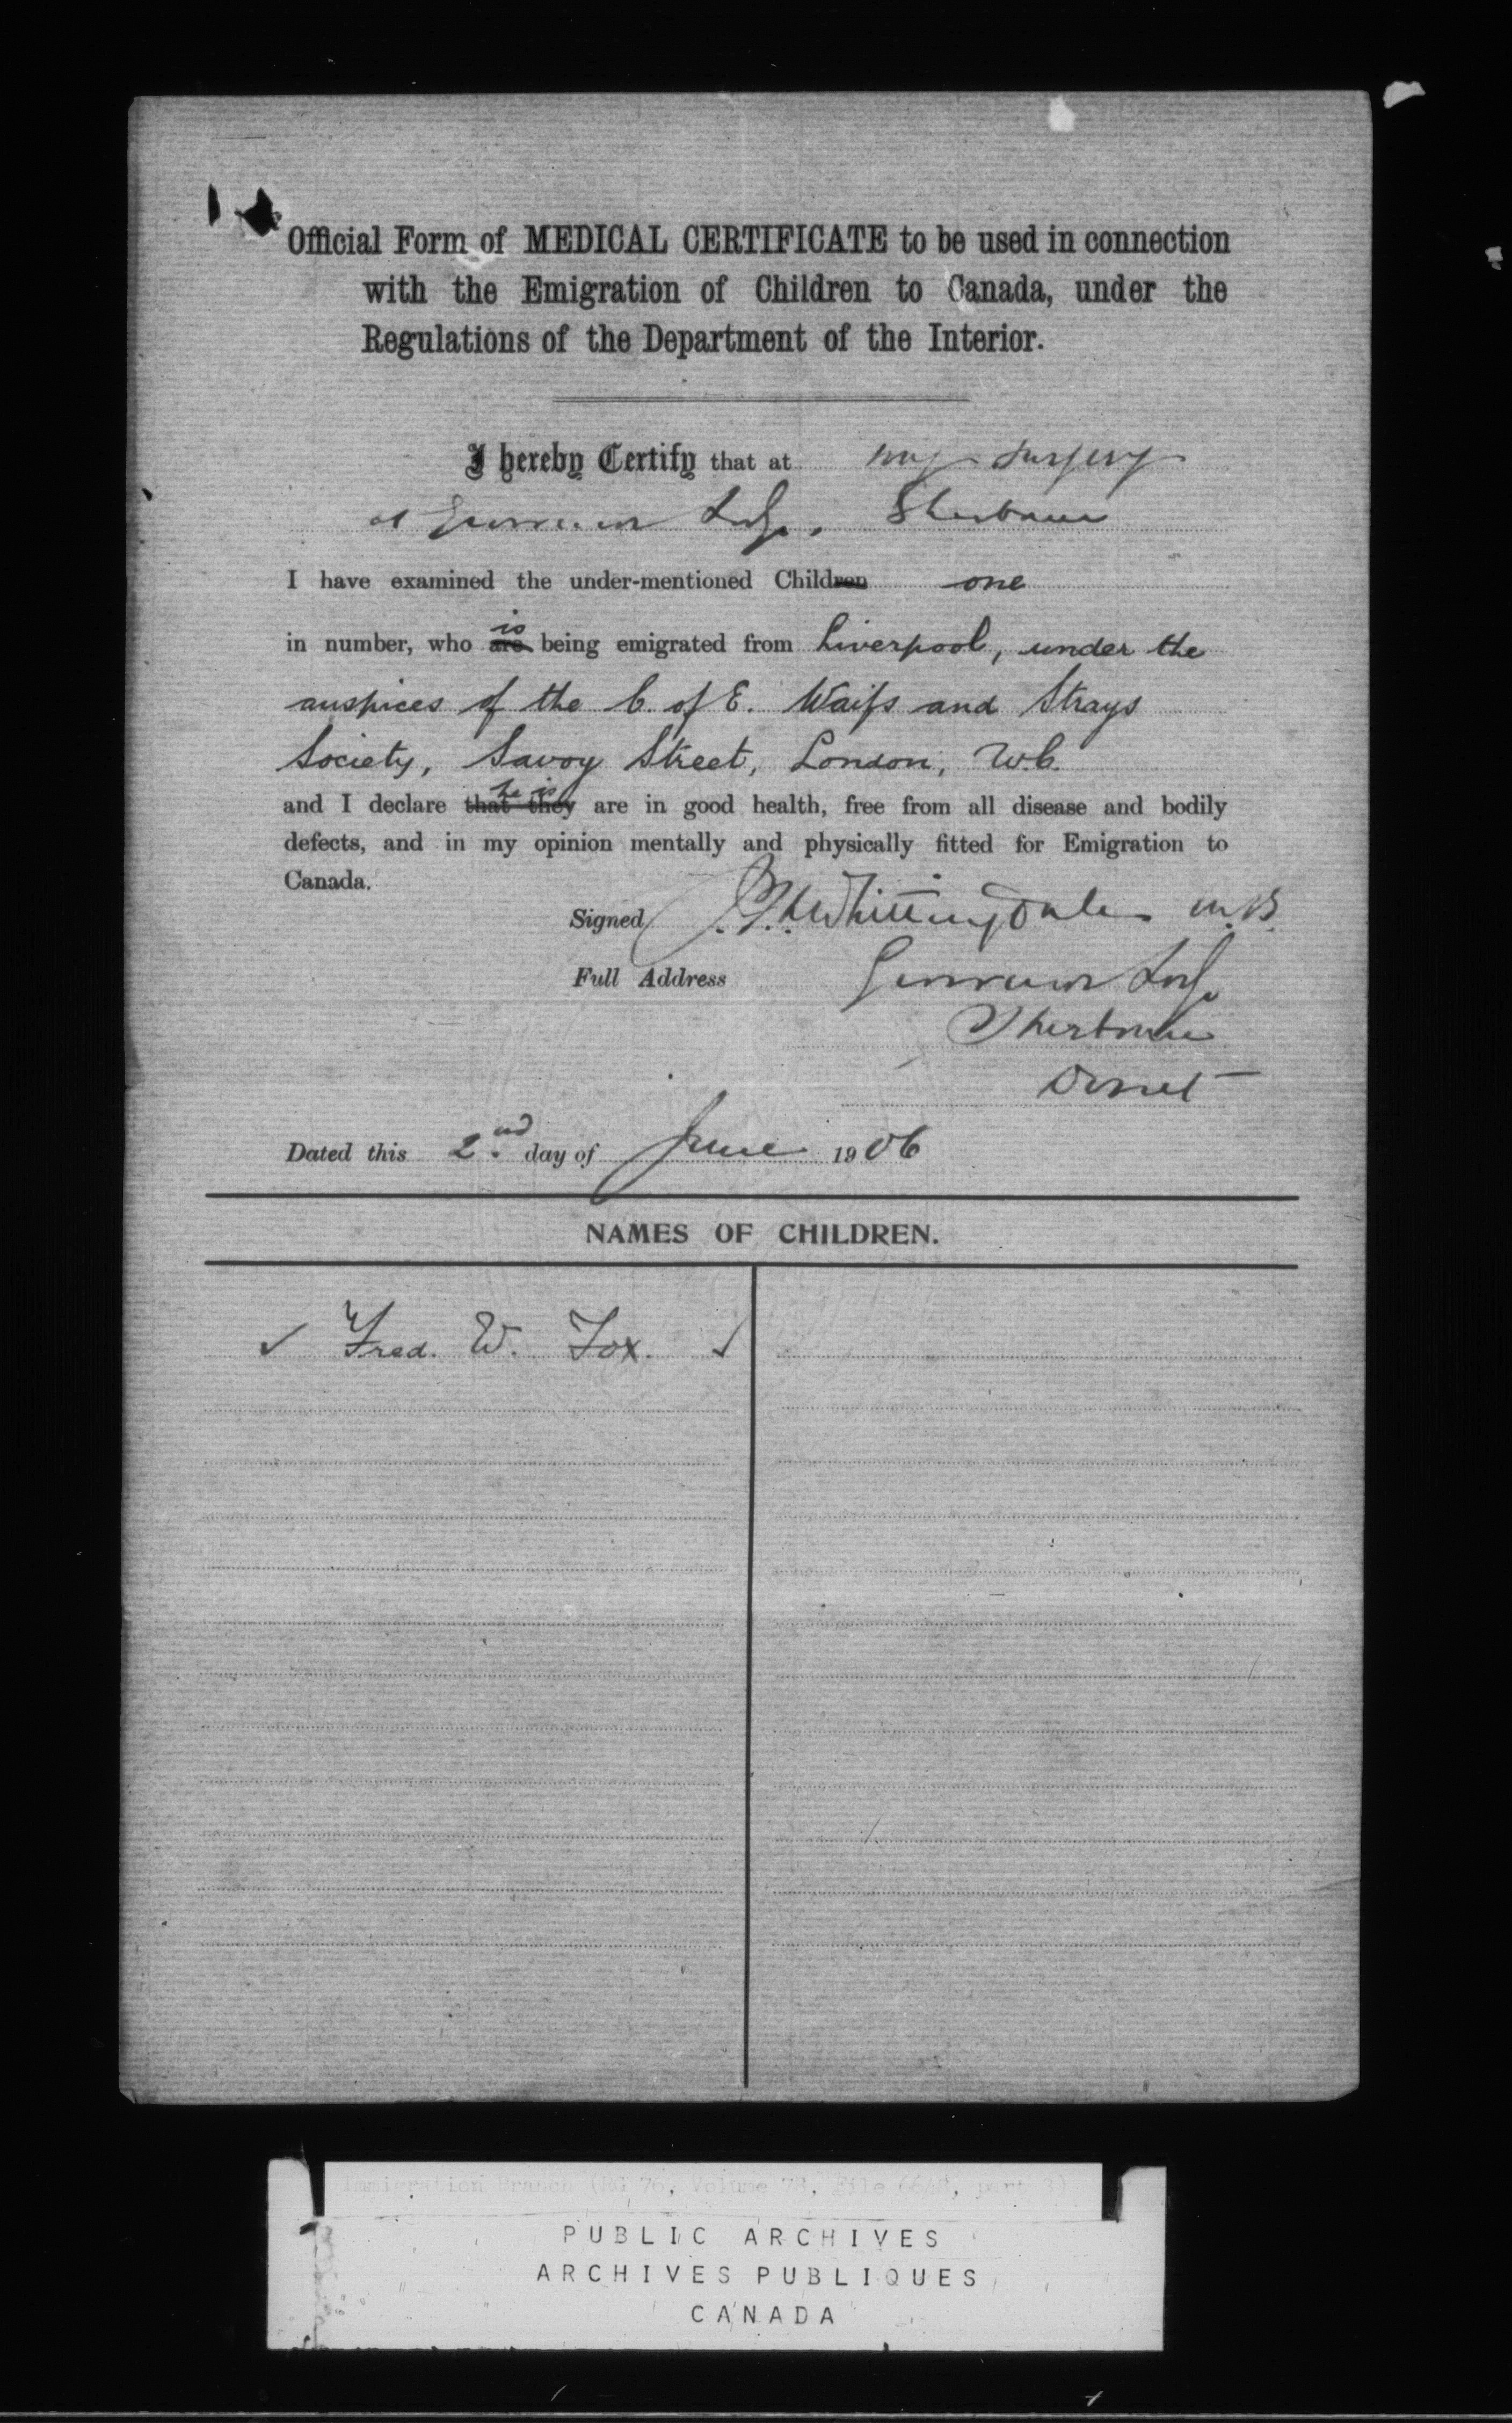 Official Form of MEDICAL CERTIFICATE to be used in connection
with the Emigration of Children to Canada, under the
Regulations of the Department of the Interior.
I hereby Certify that at my surgery
at Lodge, Sherborne
I have examined the under-mentioned Children one
in number, who are is being emigrated from Liverpool, under the
auspices of the C. of E. Waifs and Strays
Society, Savoy Street, London, W.C.
and I declare that they he is are in good health, free from all disease and bodily
defects, and in my opinion mentally and physically fitted for Emigration to
Canada.
Signed Whittingdale M.B.
Full Address Lodge
Sherborne
Dorset
Dated this 2nd day of June 1906
NAMES OF CHILDREN.
✓ Fred. W. Fox. ✓
Immigration Branch (RG 76, Volume 78, file 6648, part 3)
PUBLIC ARCHIVES
ARCHIVES PUBLIQUES
CANADA